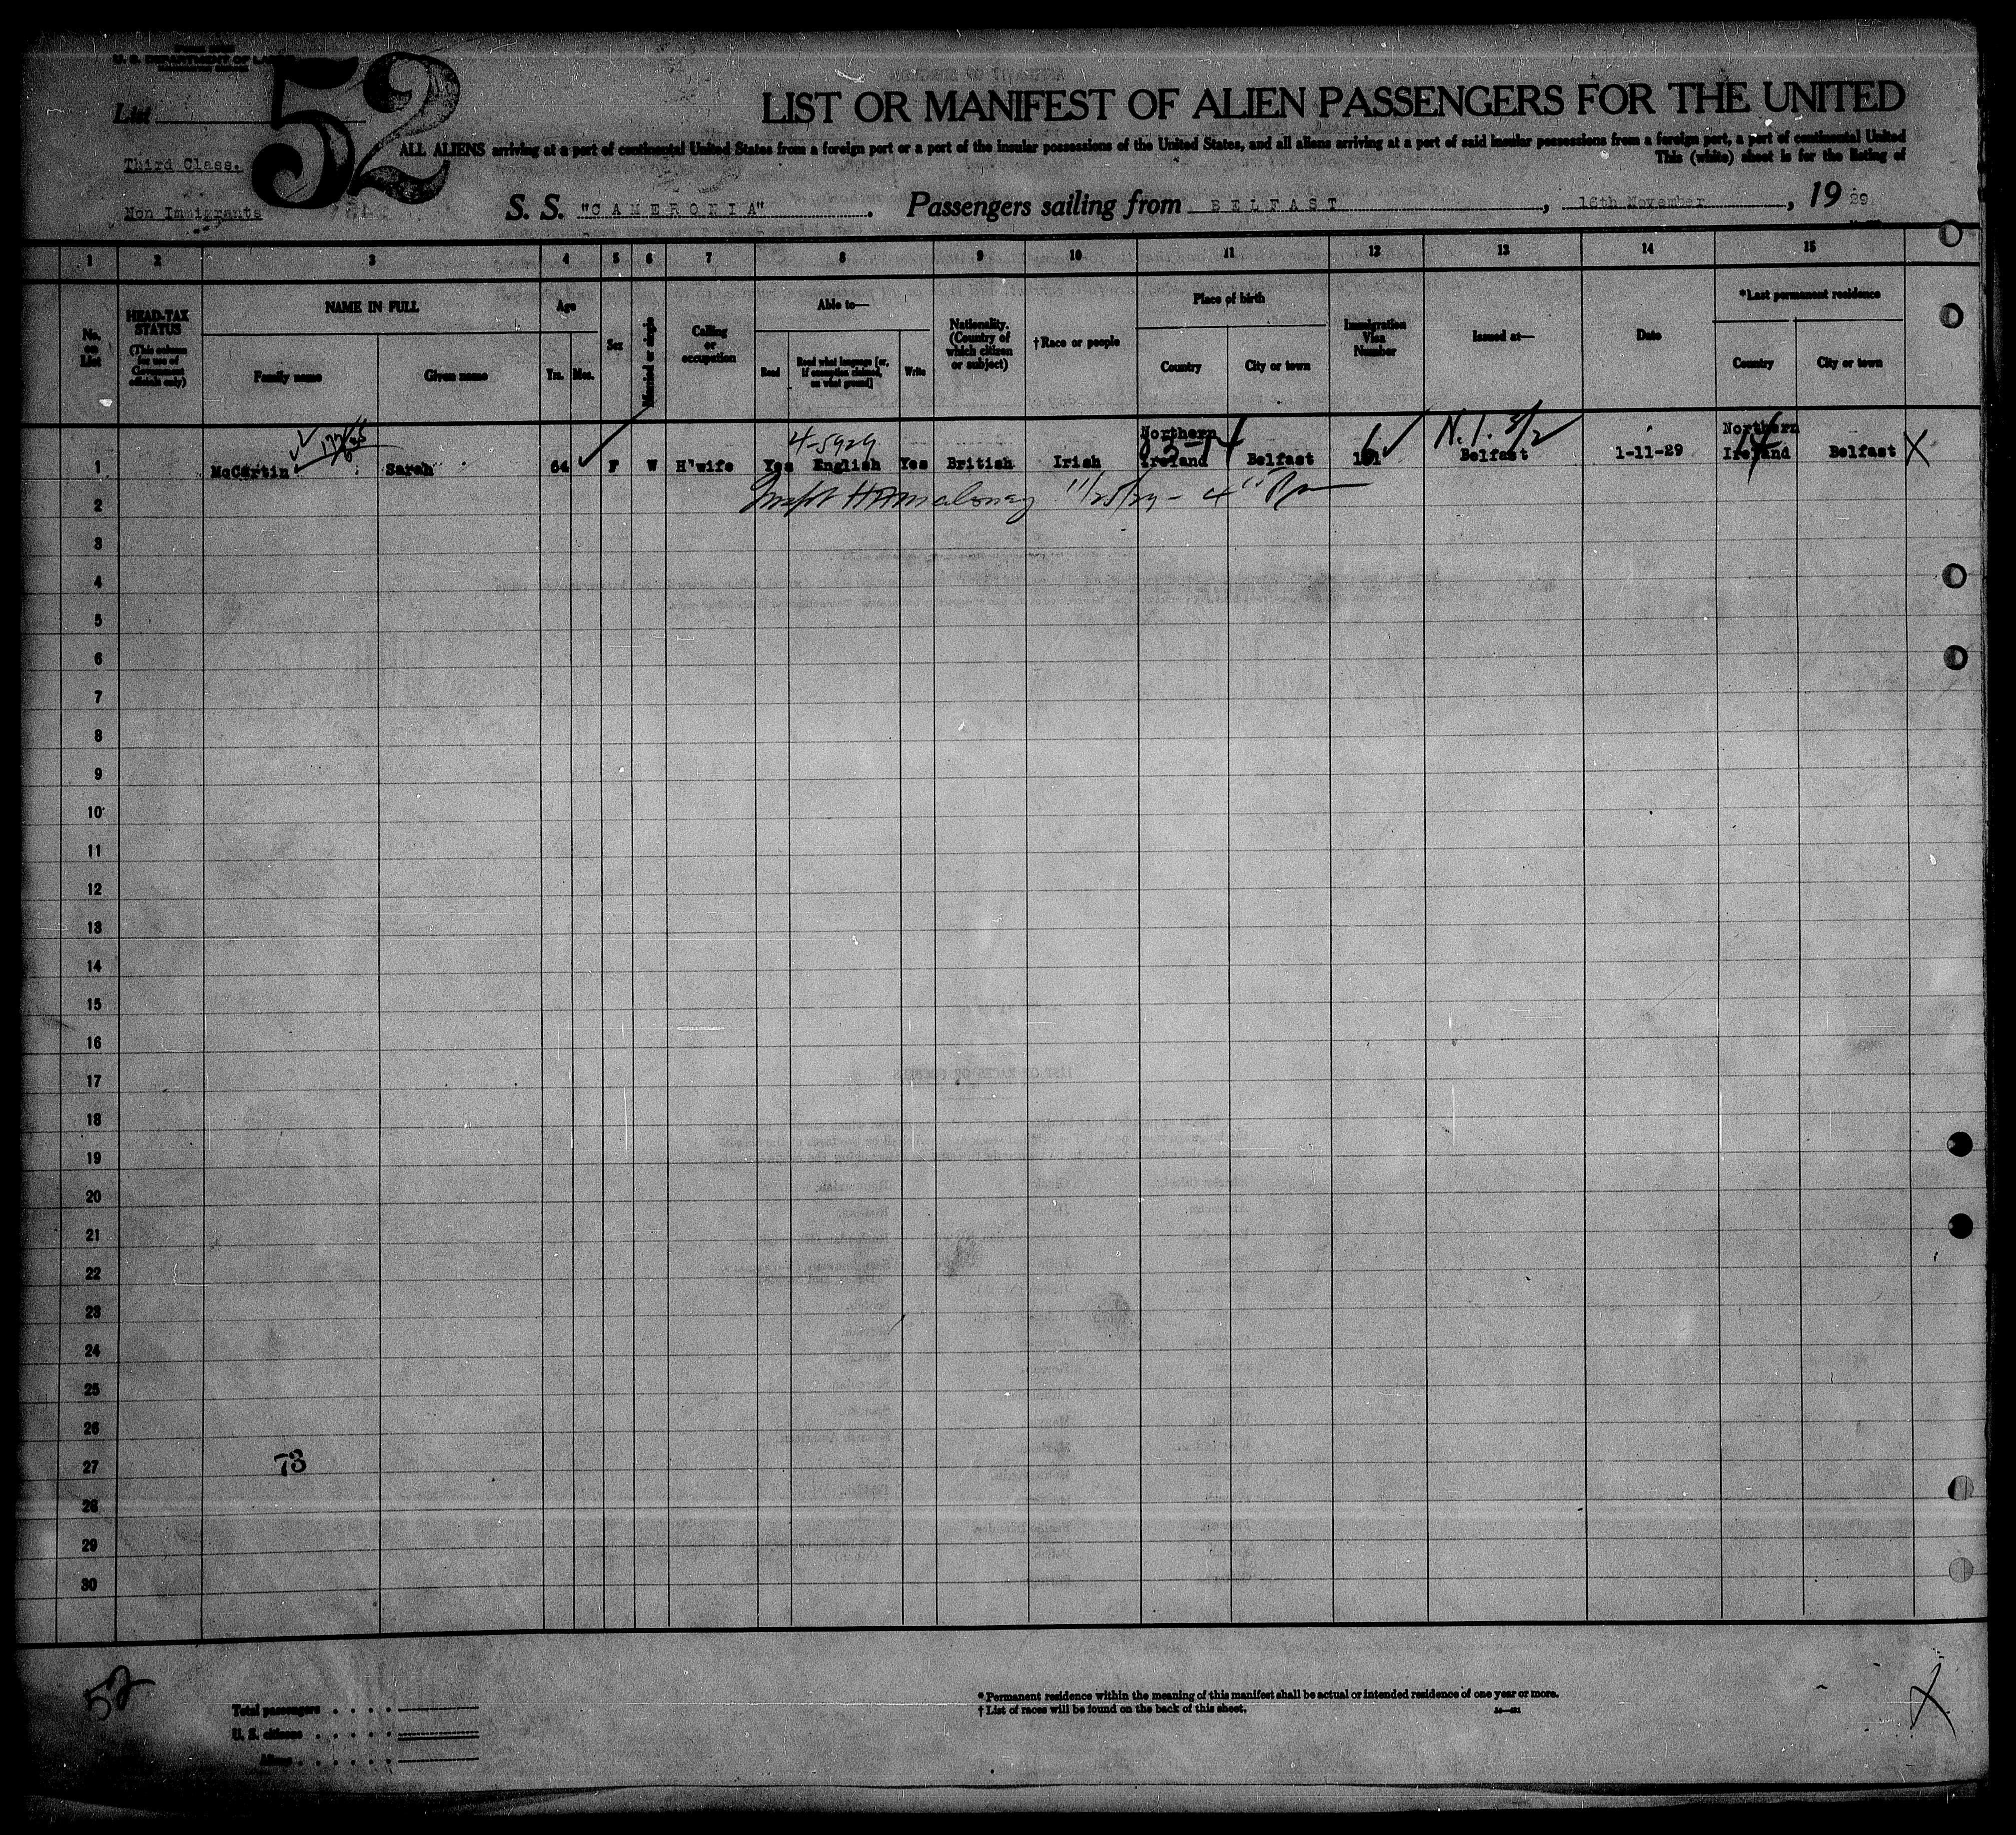 U. S. DEPARTMENT OF LABOR
List
52
LIST OR MANIFEST OF ALIEN PASSENGERS FOR THE UNITED
ALL ALIENS arriving at a port of continental United States from a foreign port or a port of the insular possessions of the United States, and all aliens arriving at a port of said insular possessions from a foreign port, a port of continental United
This (white) sheet is for the listing of
Third Class.
Non Immigrants
S. S. "CAMERONIA". Passengers sailing from BELFAST, 16th November, 1929
1 2 3 4 5 6 7 8 9 10 11 12 13 14 15
No. on List
HEAD-TAX STATUS (This column for use of Government officials only)
NAME IN FULL
Family name
Given name
Age
Yrs. Mos.
Sex
Married or single
Calling or occupation
Able to—
Read
Read what language [or, if exemption claimed, on what ground]
Write
Nationality. (Country of which citizen or subject)
†Race or people
Place of birth
Country
City or town
Immigration Visa Number
Issued at—
Date
*Last permanent residence
Country
City or town
4-5929
N.I. 3/2
1 McCartin Sarah 64 F W H'wife Yes English Yes British Irish Northern Ireland Belfast Belfast 1-11-29 Northern Ireland Belfast X
Maloney 11/25/29
2
3
4
5
6
7
8
9
10
11
12
13
14
15
16
17
18
19
20
21
22
23
24
25
26
27
73
28
29
30
52
Total passengers
U. S. citizens
Aliens
* Permanent residence within the meaning of this manifest shall be actual or intended residence of one year or more.
† List of races will be found on the back of this sheet.
X